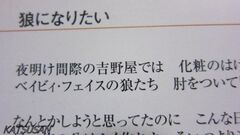 狼になりたい
夜明け間際の吉野屋では 化粧のはげ
ベイビィ・フェイスの狼たち 肘をついて
なんとかしようと思ってたのに こんな日
KATSUSAN